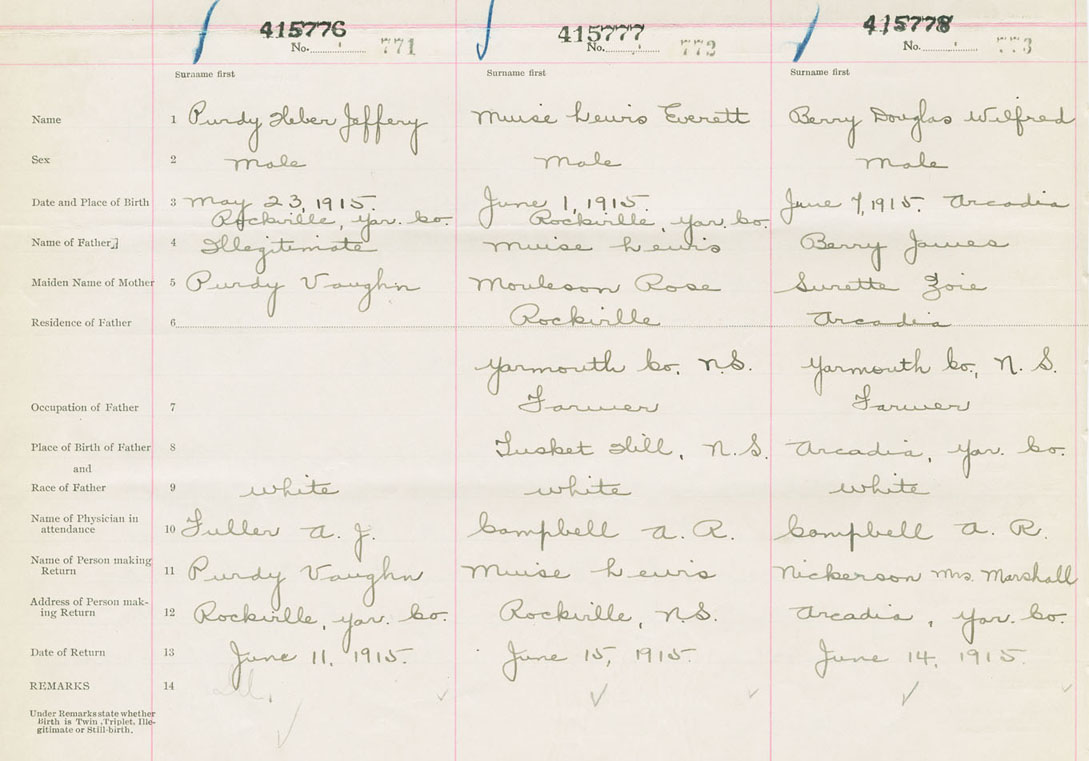 415776 415777 415778
No. 771 No. 772 No. 773
Surname first Surname first Surname first
Name 1 Purdy Heber Jeffery Muise Lewis Everett Berry Douglas Wilfred
Sex 2 Male Male Male
Date and Place of Birth 3 May 23, 1915. June 1, 1915. June 7, 1915. Arcadia
Rockville, Yar. Co. Rockville, Yar. Co.
Name of Father 4 Illegitimate Muise Lewis Berry James
Maiden Name of Mother 5 Purdy Vaughn Mouleson Rose Surette Zoie
Residence of Father 6 Rockville Arcadia
Yarmouth Co. N.S. Yarmouth Co., N. S.
Occupation of Father 7 Farmer Farmer
Place of Birth of Father 8 Tusket Hill, N.S. Arcadia, Yar. Co.
and
Race of Father 9 white white white
Name of Physician in
attendance 10 Fuller A. J. Campbell A. R. Campbell A. R.
Name of Person making
Return 11 Purdy Vaughn Muise Lewis Nickerson Mrs. Marshall
Address of Person mak-
ing Return 12 Rockville, Yar. Co. Rockville, N.S. Arcadia, Yar. Co.
Date of Return 13 June 11, 1915. June 15, 1915. June 14, 1915.
REMARKS 14
Under Remarks state whether
Birth is Twin, Triplet, Ille-
gitimate or Still-birth.